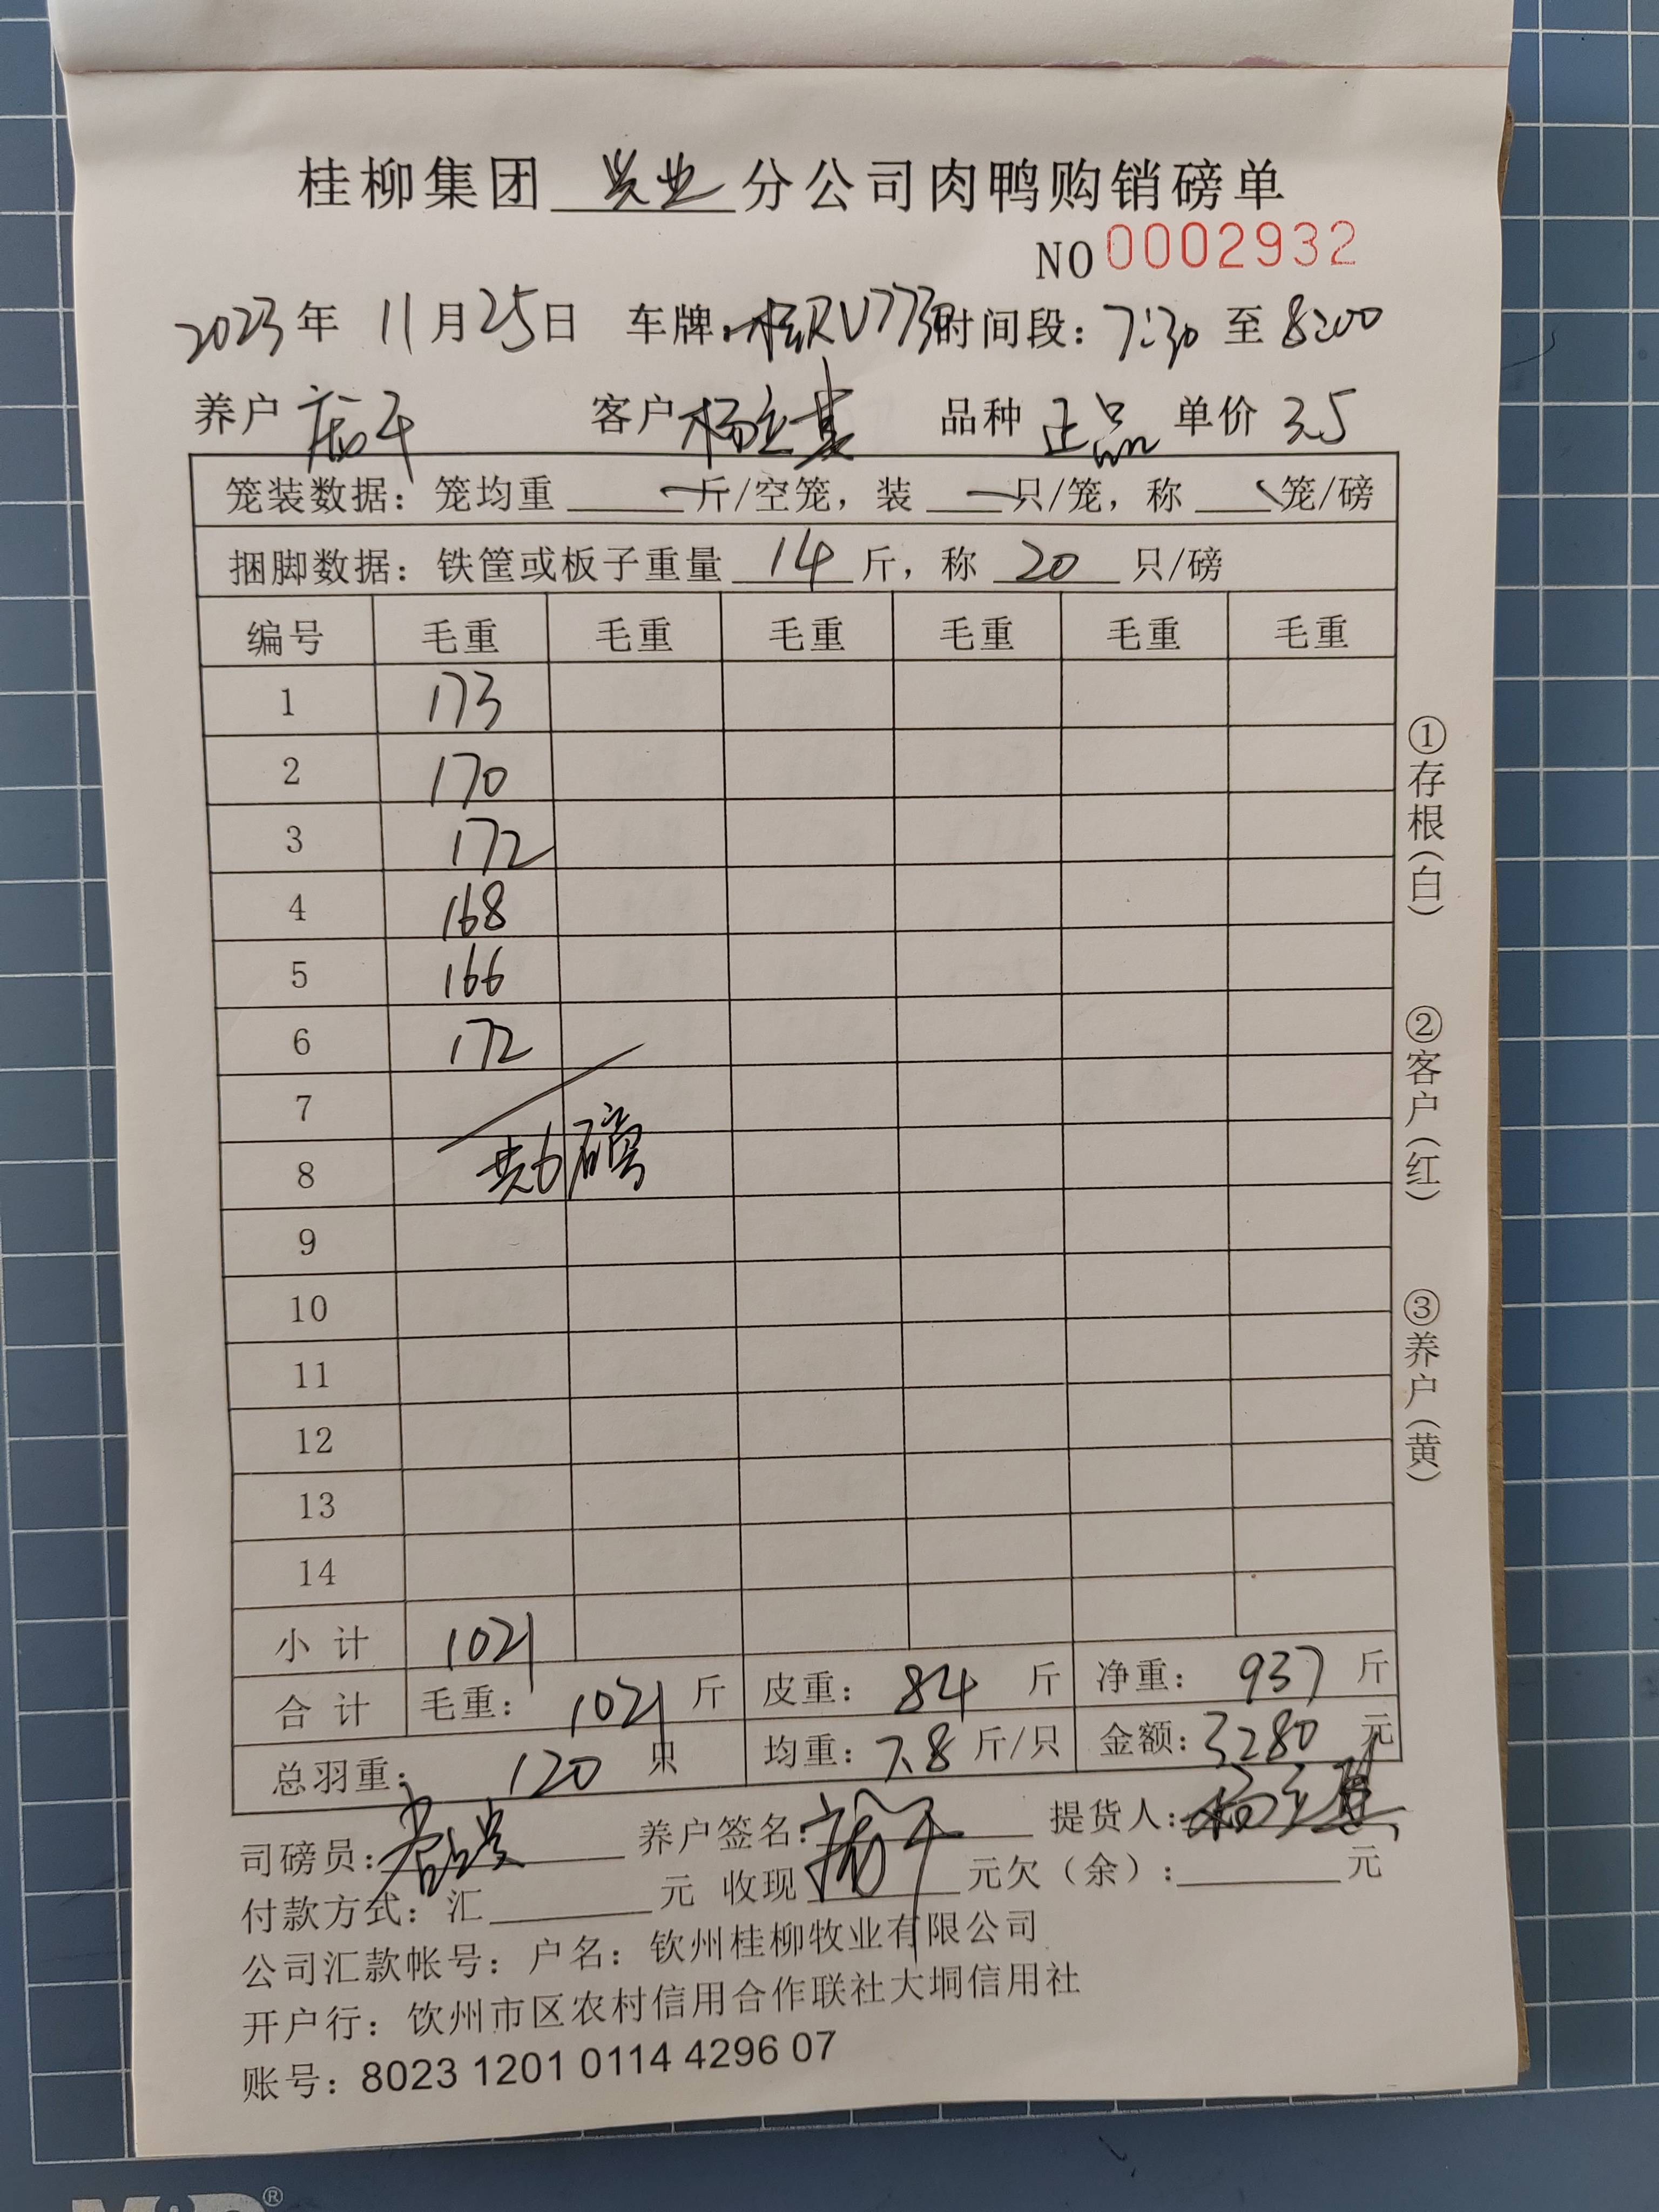 桂柳集团 兴业 分公司肉鸭购销磅单
NO 0002932
2023年 11月25日 车牌:桂RV7730 时间段: 7:30 至 8:00
养户 客户 杨立基 品种 正品 单价 3.5
笼装数据: 笼均重 — 斤/空笼, 装 — 只/笼, 称 笼/磅
捆脚数据: 铁筐或板子重量 14 斤, 称 20 只/磅
编号 毛重 毛重 毛重 毛重 毛重 毛重
1 173
2 170
3 172
4 168
5 166
6 172
7
8 共6磅
9
10
11
12
13
14
小 计 1021
合 计 毛重: 1021 斤 皮重: 84 斤 净重: 937 斤
总羽重: 120 只 均重: 7.8 斤/只 金额: 3280 元
司磅员: 养户签名: 提货人: 杨立基
付款方式: 汇 元 收现 元欠(余): 元
公司汇款帐号: 户名: 钦州桂柳牧业有限公司
开户行: 钦州市区农村信用合作联社大垌信用社
账号: 8023 1201 0114 4296 07
①存根(白)
②客户(红)
③养户(黄)